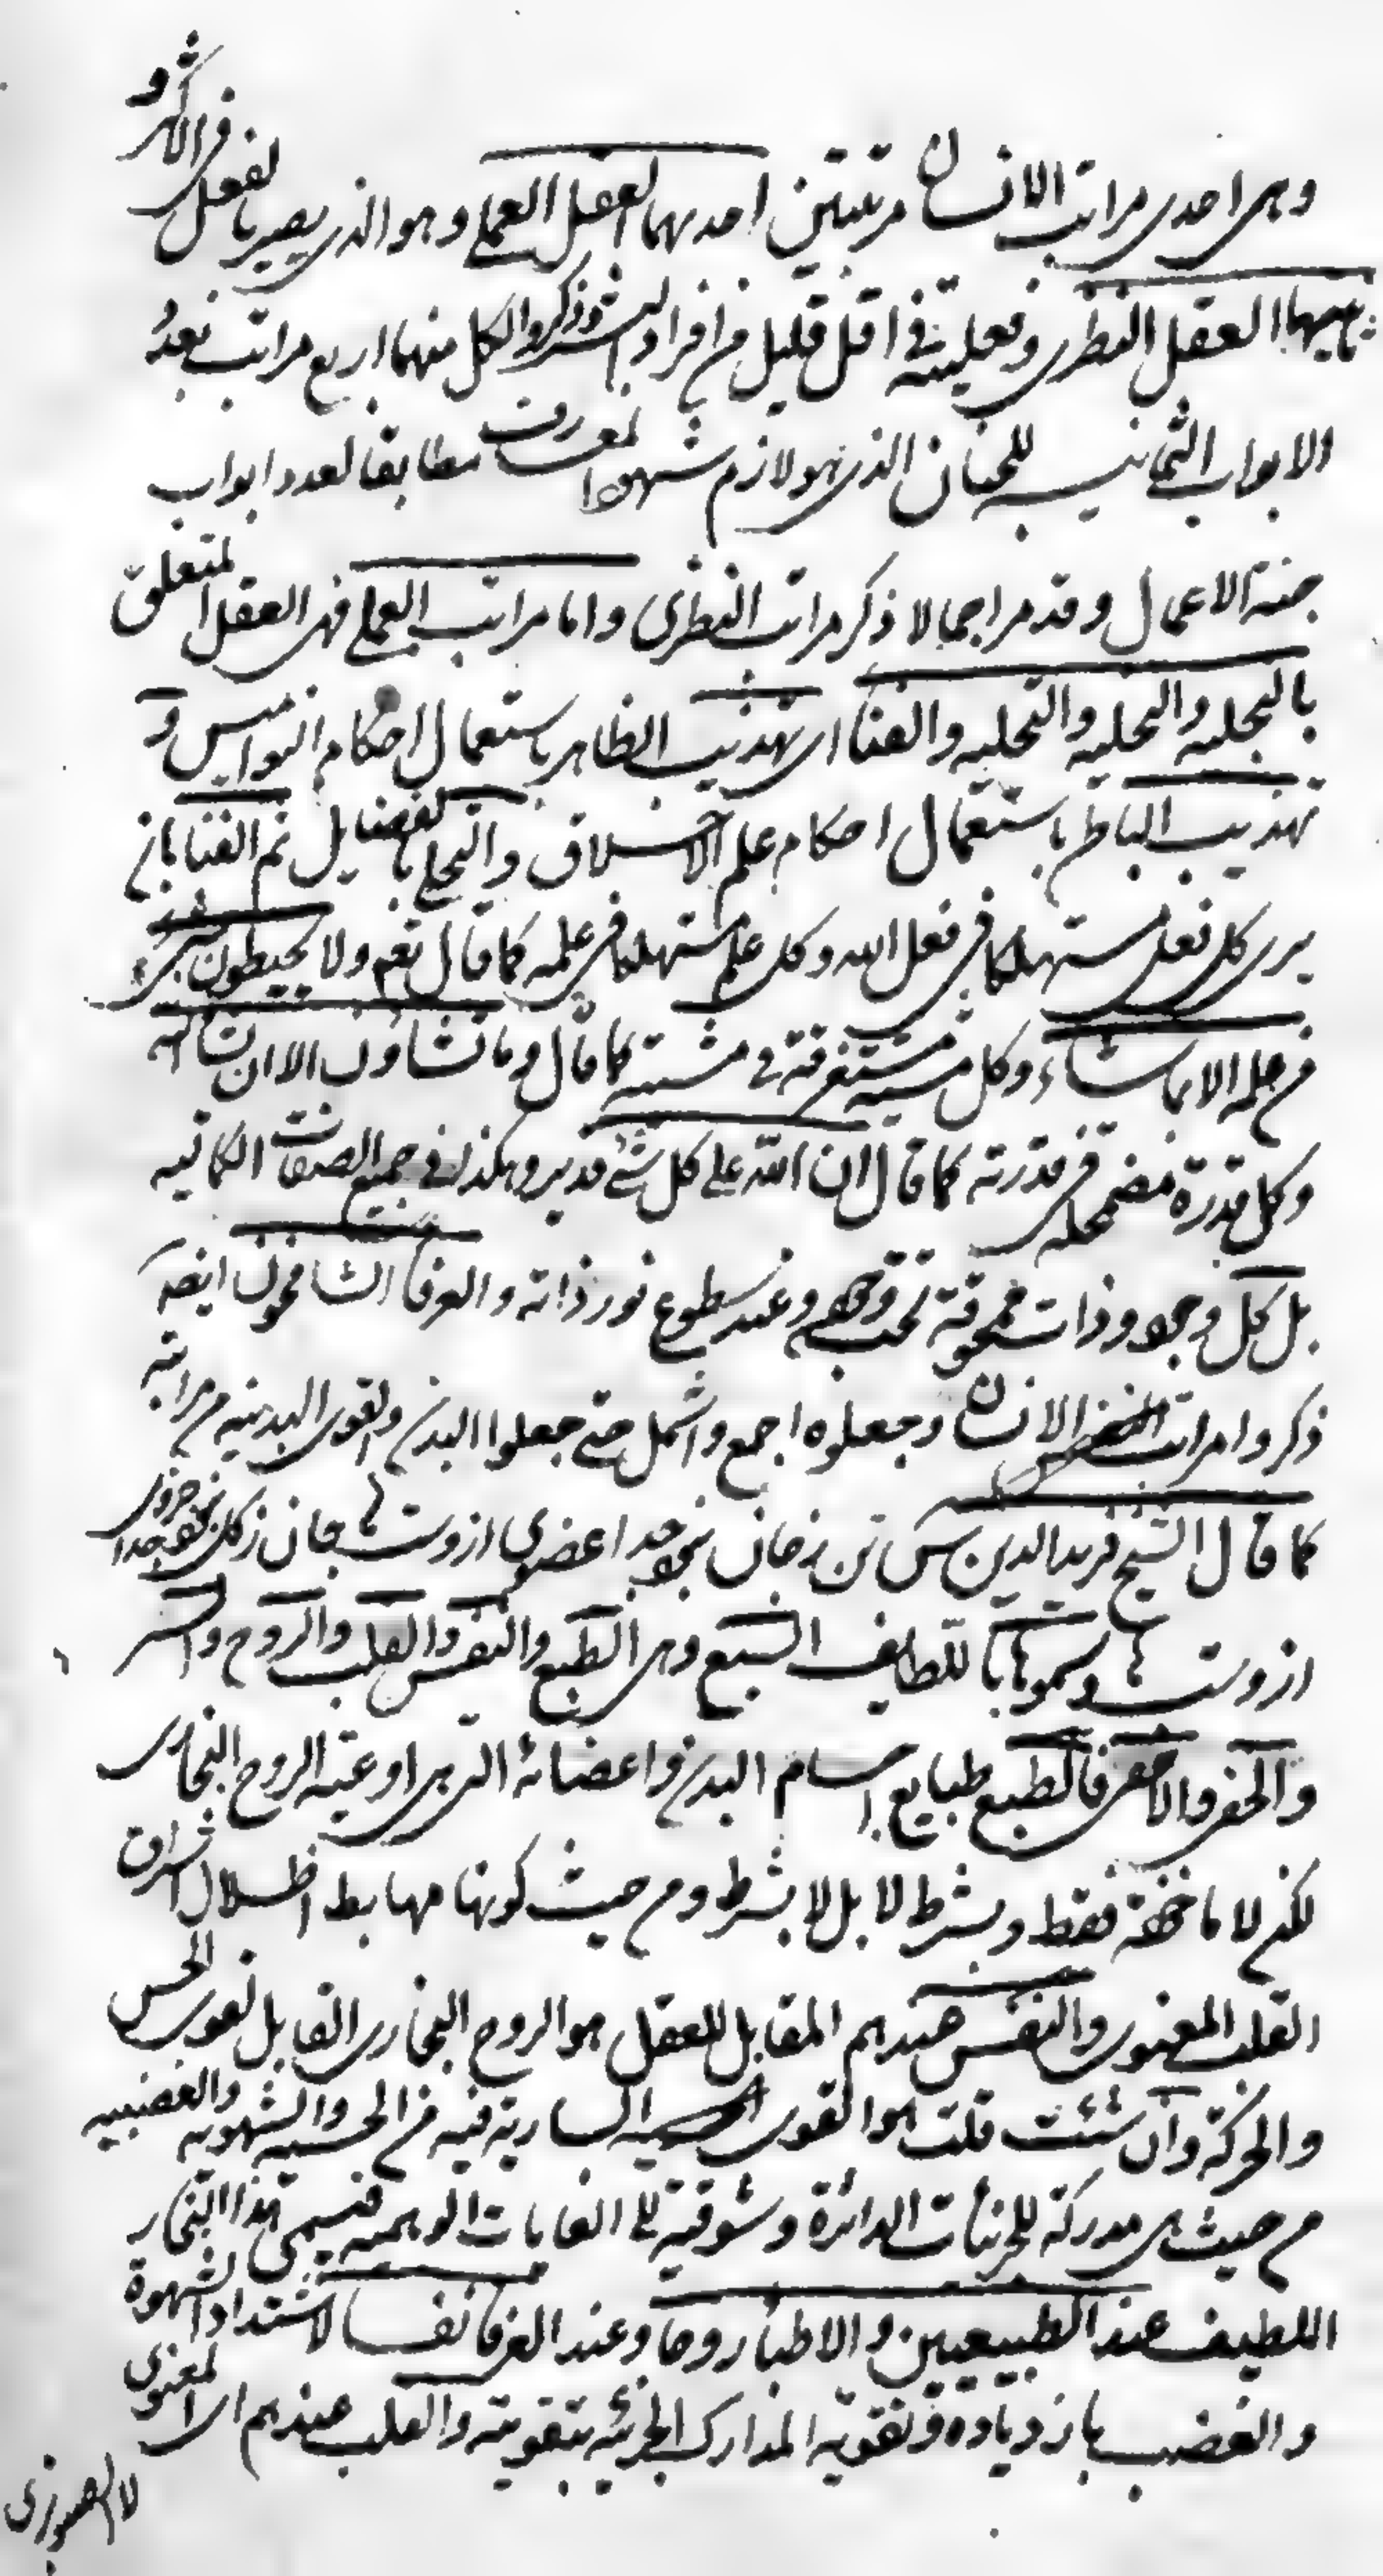 وهى احدى مراتب الانسان مرتبتين احدىهما العقل العملى وهو الذى يصير بالفعل فى الاكثر و
ثانيهما العقل النظرى وفعليته فى اقل قليل من افراد البشر وذكروا لكل منهما اربع مراتب بعدد
الابواب الثمانيه للجنان الذى هو لازم شهود المعرفت مطابقا لعدد ابواب
جنة الاعمال وقد مر اجمالا ذكر مراتب النظرى واما مراتب العملى فهى العقل المتعلق
بالتجليه والتخليه والتحليه والفنا اى تهذيب الظاهر باستعمال احكام النواميس و
تهذيب الباطن باستعمال احكام علم الاخلاق والتحلى بالفضايل ثم الفنا بان
يرى كل فعل مستهلكا فى فعل الله وكل علم مستهلكا فى علمه كما قال تعم ولا يحيطون بشىء
من علمه الا بما شاء وكل مشية مستغرقة فى مشيته كما قال وما تشاؤن الا ان يشاء الله
وكل قدرة مضمحله فى قدرته كما قال ان الله على كل شئ قدير وهكذا فى جميع الصفات الكماليه
بل كل وجود وذات ممحوقة تحت وجهه وعند سطوع نور ذاته والعرفا الشامخون ايضه
ذكروا مراتب النفس الانسان وجعلوه اجمع واشمل حتى جعلوا البدن والقوى البدنيه من مراتبه
كما قال الشيخ فريد الدين س تن زجان نبود جدا عضوى ازوست جان زكل نبود جدا جزوى
ازوست وسموها باللطايف السبع وهى الطبع والنفس والقلب والروح والسر
والخفى والاخفى فالطبع طبايع اجسام البدن واعضائه التى هى اوعية الروح البخارى
لكن لا ماخوذة فقط وبشرط لا بل لا بشرط ومن حيث كونها مهابط اظلال اشراق
القلب المعنوى والنفس عندهم المقابل للعقل هو الروح البخارى القابل لقوى الحس
والحركة وان شئت قلت هو القوى السارية فيه من الحسيه والشهويه والغضبيه
من حيث هى مدركة للجزئيات الداثرة وشوقية الى الغايات الوهميه فيسمى هذا البخار
اللطيف عند الطبيعيين والاطباء روحا وعند العرفا نفسا لاشتداد الشهوة
والغضب بازدياده وتقوية المدارك الجزئيه بتقويته والقلب عندهم اى المعنوى
لا الصنوبرى